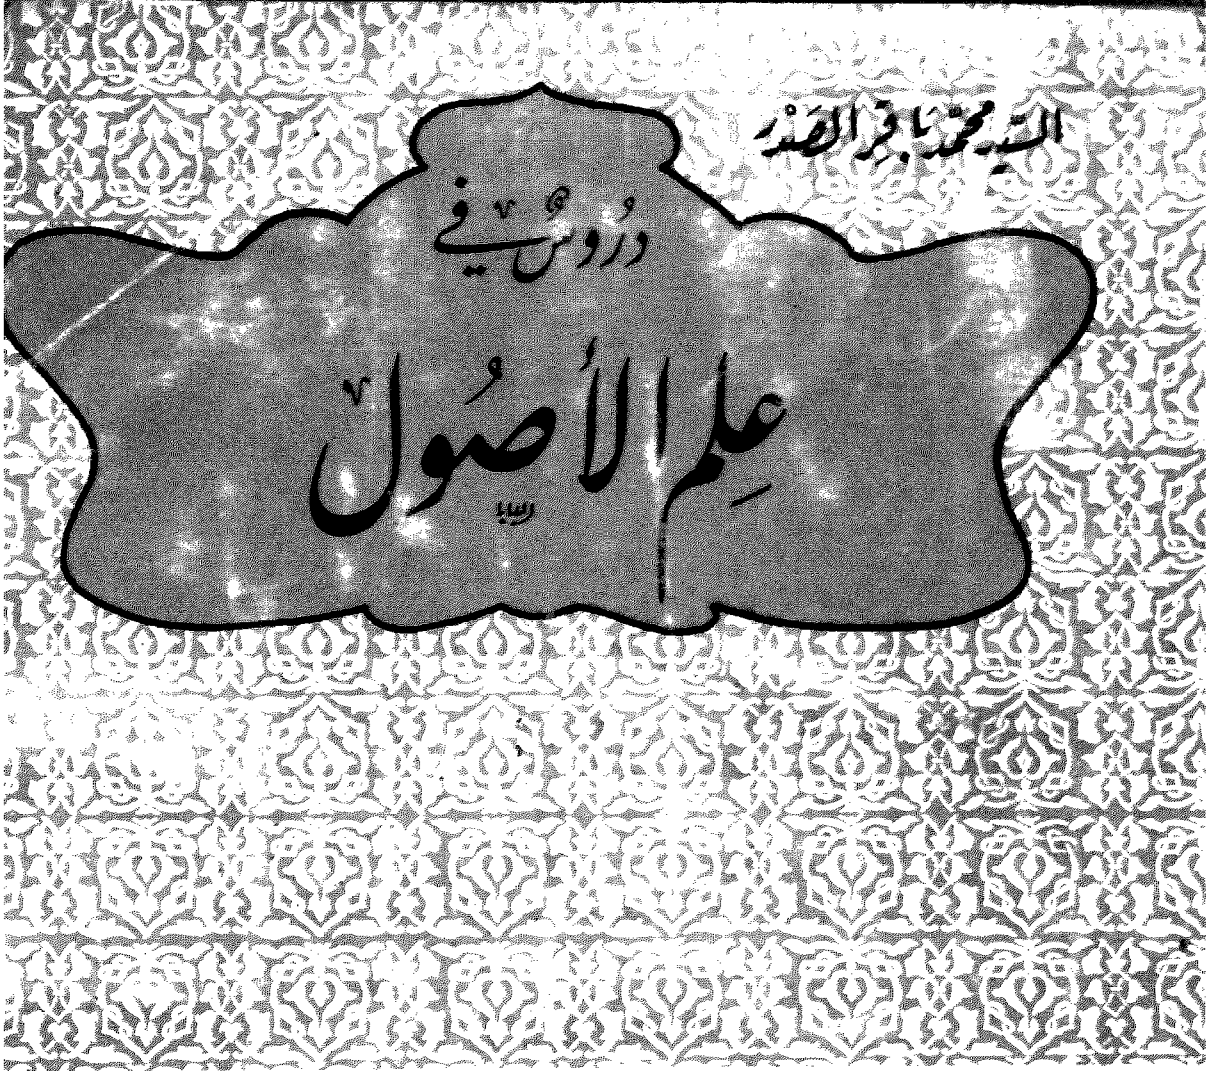 السَّيِّد محَمَّد بَاقِر الصَّدْر
دُرُوسٌ في
عِلْم الأُصُول